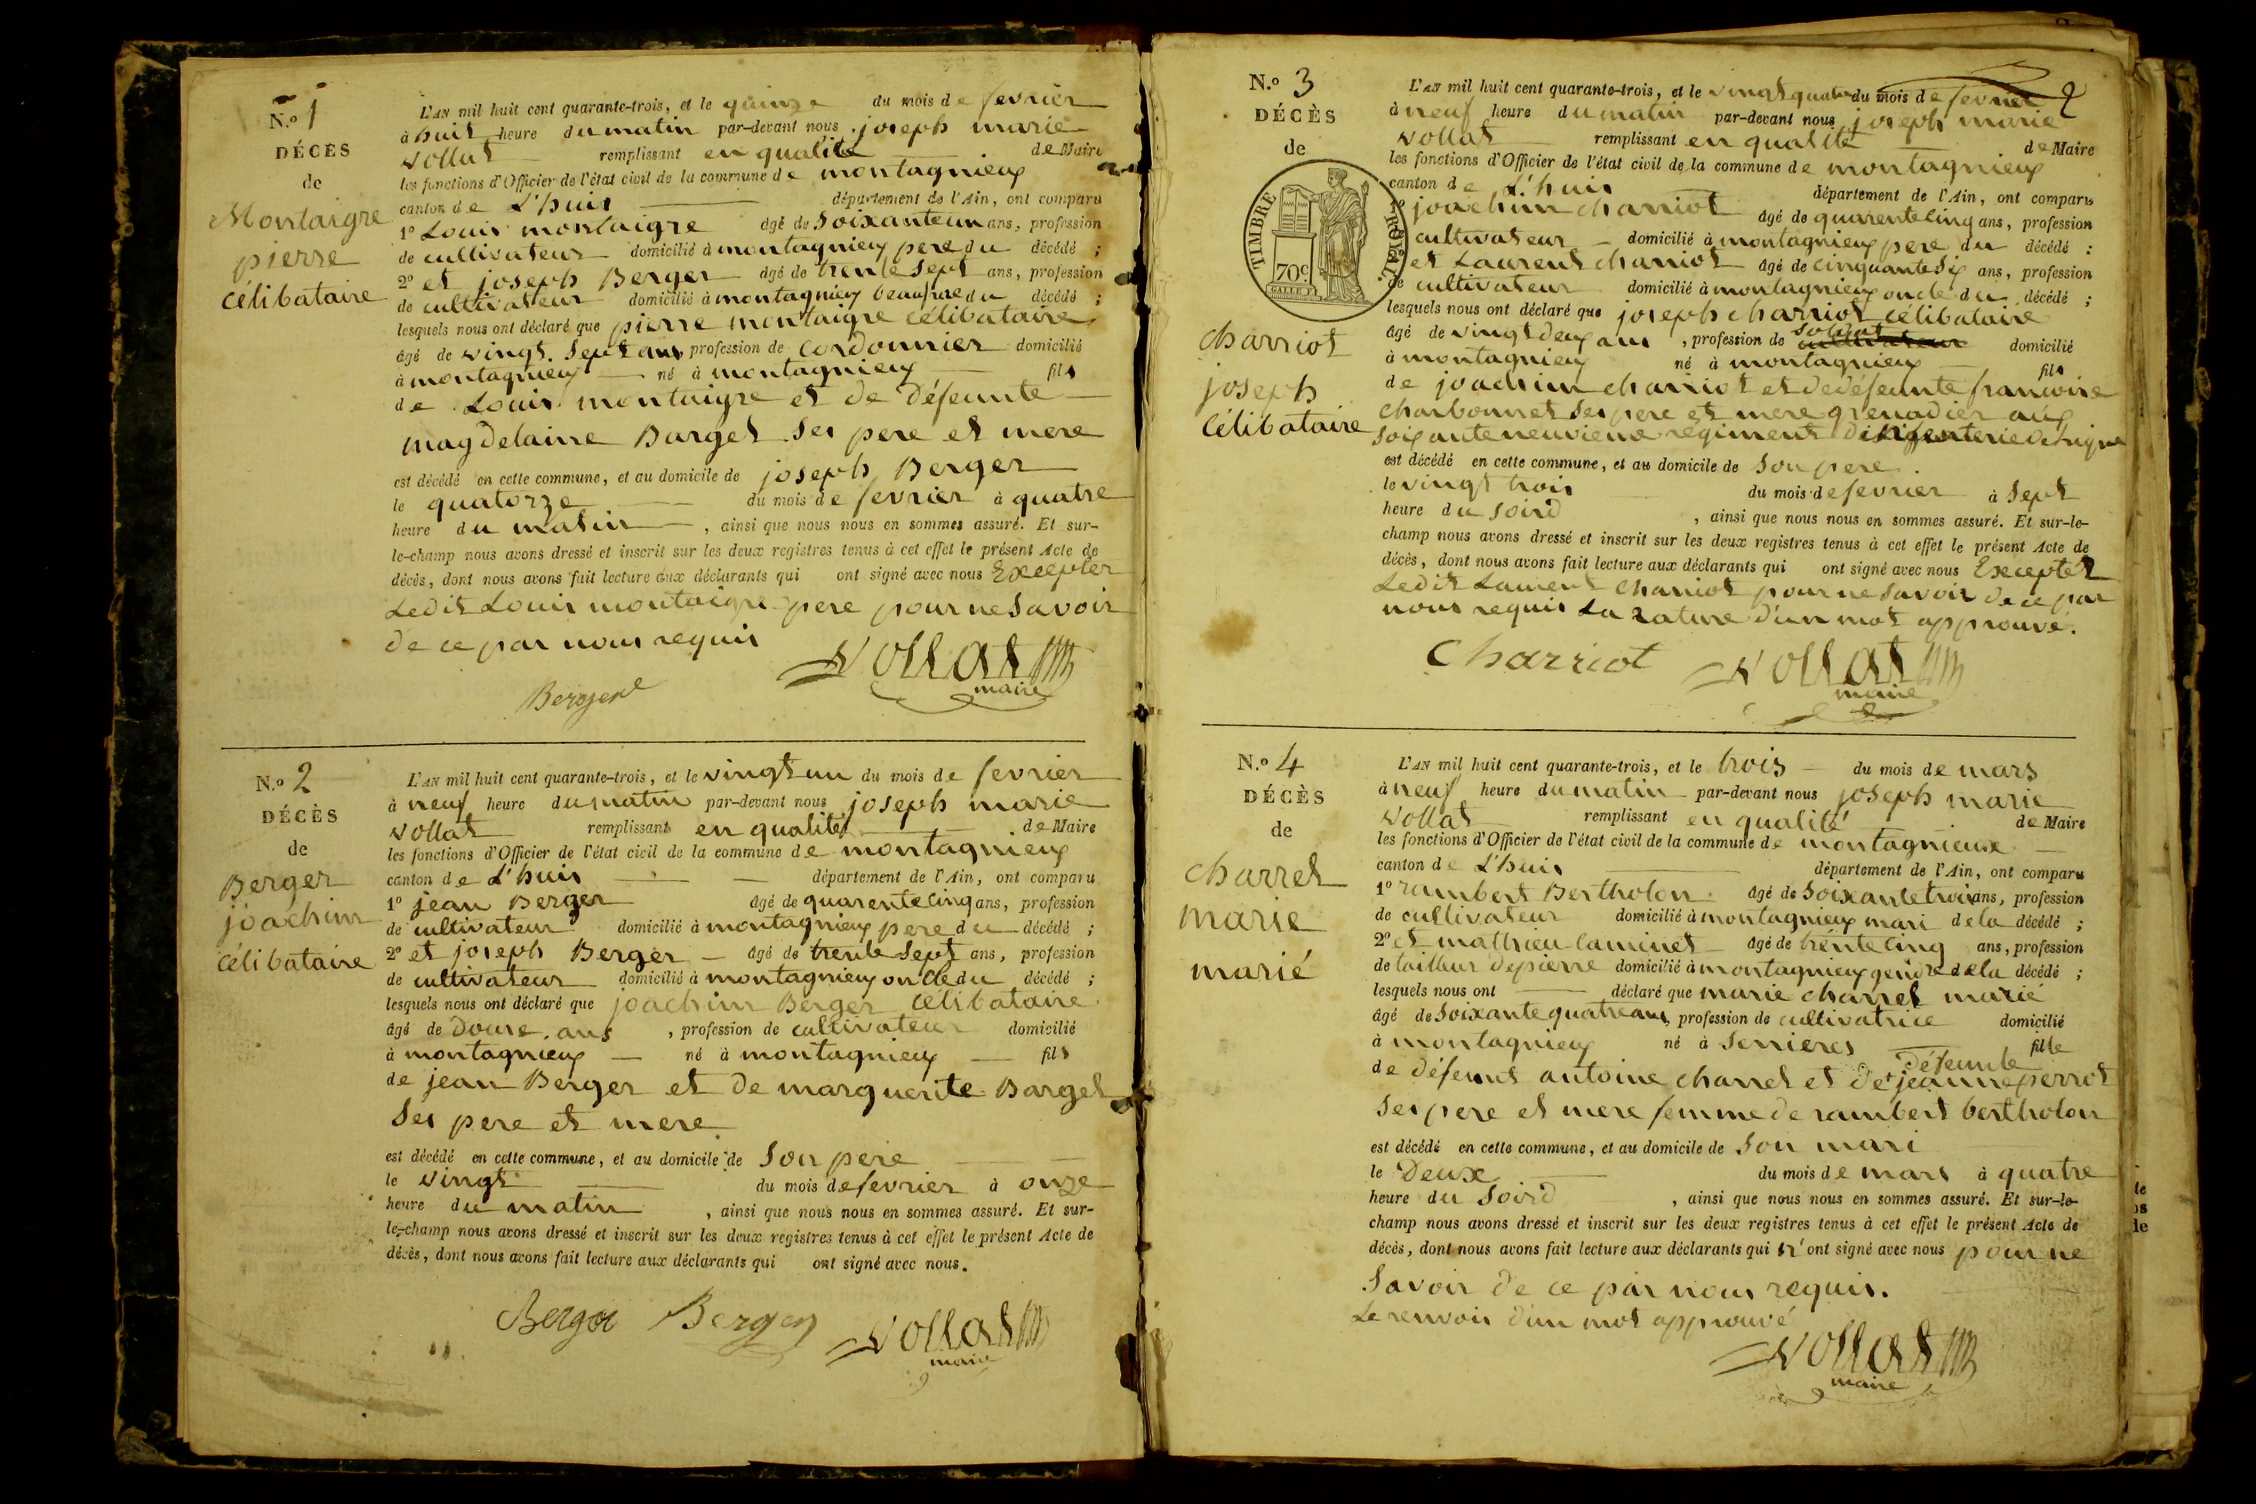 N.o 1
DÉCÈS
de
Montaigre
pierre
célibataire
L'AN mil huit cent quarante-trois, et le quinze du mois de fevrier
à huit heure du matin par-devant nous joseph marie
vollat remplissant en qualité de Maire
les fonctions d'Officier de l'état civil de la commune de montagnieux
canton de L'huis département de l'Ain, ont comparu
1o Louis montaigre âgé de Soixante un ans, profession
de cultivateur domicilié à montagnieux pere du décédé ;
2o et joseph Berger âgé de trente Sept ans, profession
de cultivateur domicilié à montagnieux beaufrere du décédé ;
lesquels nous ont déclaré que pierre montaigre célibataire
âgé de vingt. Sept ans profession de cordonnier domicilié
à montagnieux né à montagnieux fils
de Louis montaigre et de Défeunte
magdelaine Barget Ses pere et mere
est décédé en cette commune, et au domicile de joseph Berger
le quatorze du mois de fevrier à quatre
heure du matin , ainsi que nous nous en sommes assuré. Et sur-
le-champ nous avons dressé et inscrit sur les deux registres tenus à cet effet le présent Acte de
décès, dont nous avons fait lecture aux déclarants qui ont signé avec nous Excepter
Ledit Louis montaigre pere pour ne Savoir
de ce par nous requis
vollat
maire
Berger
N.o 2
DÉCÈS
de
Berger
joachim
célibataire
L'AN mil huit cent quarante-trois, et le vingt un du mois de fevrier
à neuf heure du matin par-devant nous joseph marie
vollat remplissant en qualité de Maire
les fonctions d'Officier de l'état civil de la commune de montagnieux
canton de L'huis département de l'Ain, ont comparu
1o jean Berger âgé de quarente cinq ans, profession
de cultivateur domicilié à montagnieux pere du décédé ;
2o et joseph Berger âgé de trente Sept ans, profession
de cultivateur domicilié à montagnieux oncle du décédé ;
lesquels nous ont déclaré que joachim Berger célibataire
âgé de Douse ans , profession de cultivateur domicilié
à montagnieux né à montagnieux fils
de jean Berger et de marguerite Barget
Ses pere et mere
est décédé en cette commune, et au domicile de Son pere
le vingt du mois de fevrier à onze
heure du matin , ainsi que nous nous en sommes assuré. Et sur-
le-champ nous avons dressé et inscrit sur les deux registres tenus à cet effet le présent Acte de
décès, dont nous avons fait lecture aux déclarants qui ont signé avec nous.
Berger Berger vollat
maire
2
N.o 3
DÉCÈS
de
TIMBRE ROYAL
70c
charriot
joseph
célibataire
L'AN mil huit cent quarante-trois, et le vingt quatre du mois de fevrier
à neuf heure du matin par-devant nous joseph marie
vollat remplissant en qualité de Maire
les fonctions d'Officier de l'état civil de la commune de montagnieux
canton de L'huis département de l'Ain, ont comparu
joachim charriot âgé de quarente cinq ans, profession
cultivateur domicilié à montagnieux pere du décédé ;
et Laurent charriot âgé de cinquante six ans, profession
de cultivateur domicilié à montagnieux oncle du décédé ;
lesquels nous ont déclaré que joseph charriot célibataire
âgé de vingt deux ans , profession de soldat cultivateur domicilié
à montagnieux né à montagnieux fils
de joachim charriot et de défeunte francoise
charbonnet Ses pere et mere grenadier aux
Soixante neuvieme régiment D'infenterie de Ligne
est décédé en cette commune, et au domicile de Son pere
le vingt trois du mois de fevrier à Sept
heure du Soird , ainsi que nous nous en sommes assuré. Et sur-le-
champ nous avons dressé et inscrit sur les deux registres tenus à cet effet le présent Acte de
décès, dont nous avons fait lecture aux déclarants qui ont signé avec nous Exceptér
Ledit Laurent charriot pour ne Savoir de ce par
nous requis La rature d'un mot approuvé.
Charriot vollat
maire
N.o 4
DÉCÈS
de
charret
marie
marié
L'AN mil huit cent quarante-trois, et le trois du mois de mars
à neuf heure du matin par-devant nous joseph marie
vollat remplissant en qualité de Maire
les fonctions d'Officier de l'état civil de la commune de montagnieux
canton de L'huis département de l'Ain, ont comparu
1o rambert Bertholon âgé de Soixante trois ans, profession
de cultivateur domicilié à montagnieux mari de la décédé ;
2o et mathieu caminet âgé de trente cinq ans, profession
de tailleur de pierre domicilié à montagnieux gendre de la décédé ;
lesquels nous ont déclaré que marie charret marié
âgé de Soixante quatre ans, profession de cultivatrice domicilié
à montagnieux né à Serrieres fille
de défeunt antoine charret et de défeunte jeanne perrot
Ses pere et mere femme de rambert bertholon
est décédé en cette commune, et au domicile de Son mari
le Deux du mois de mars à quatre
heure du Soird , ainsi que nous nous en sommes assuré. Et sur-le-
champ nous avons dressé et inscrit sur les deux registres tenus à cet effet le présent Acte de
décès, dont nous avons fait lecture aux déclarants qui n'ont signé avec nous pour ne
Savoir de ce par nous requis.
Le renvoi d'un mot approuvé
vollat
maire